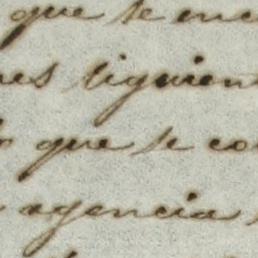 que se enc
es siguien
o que se co
agencia